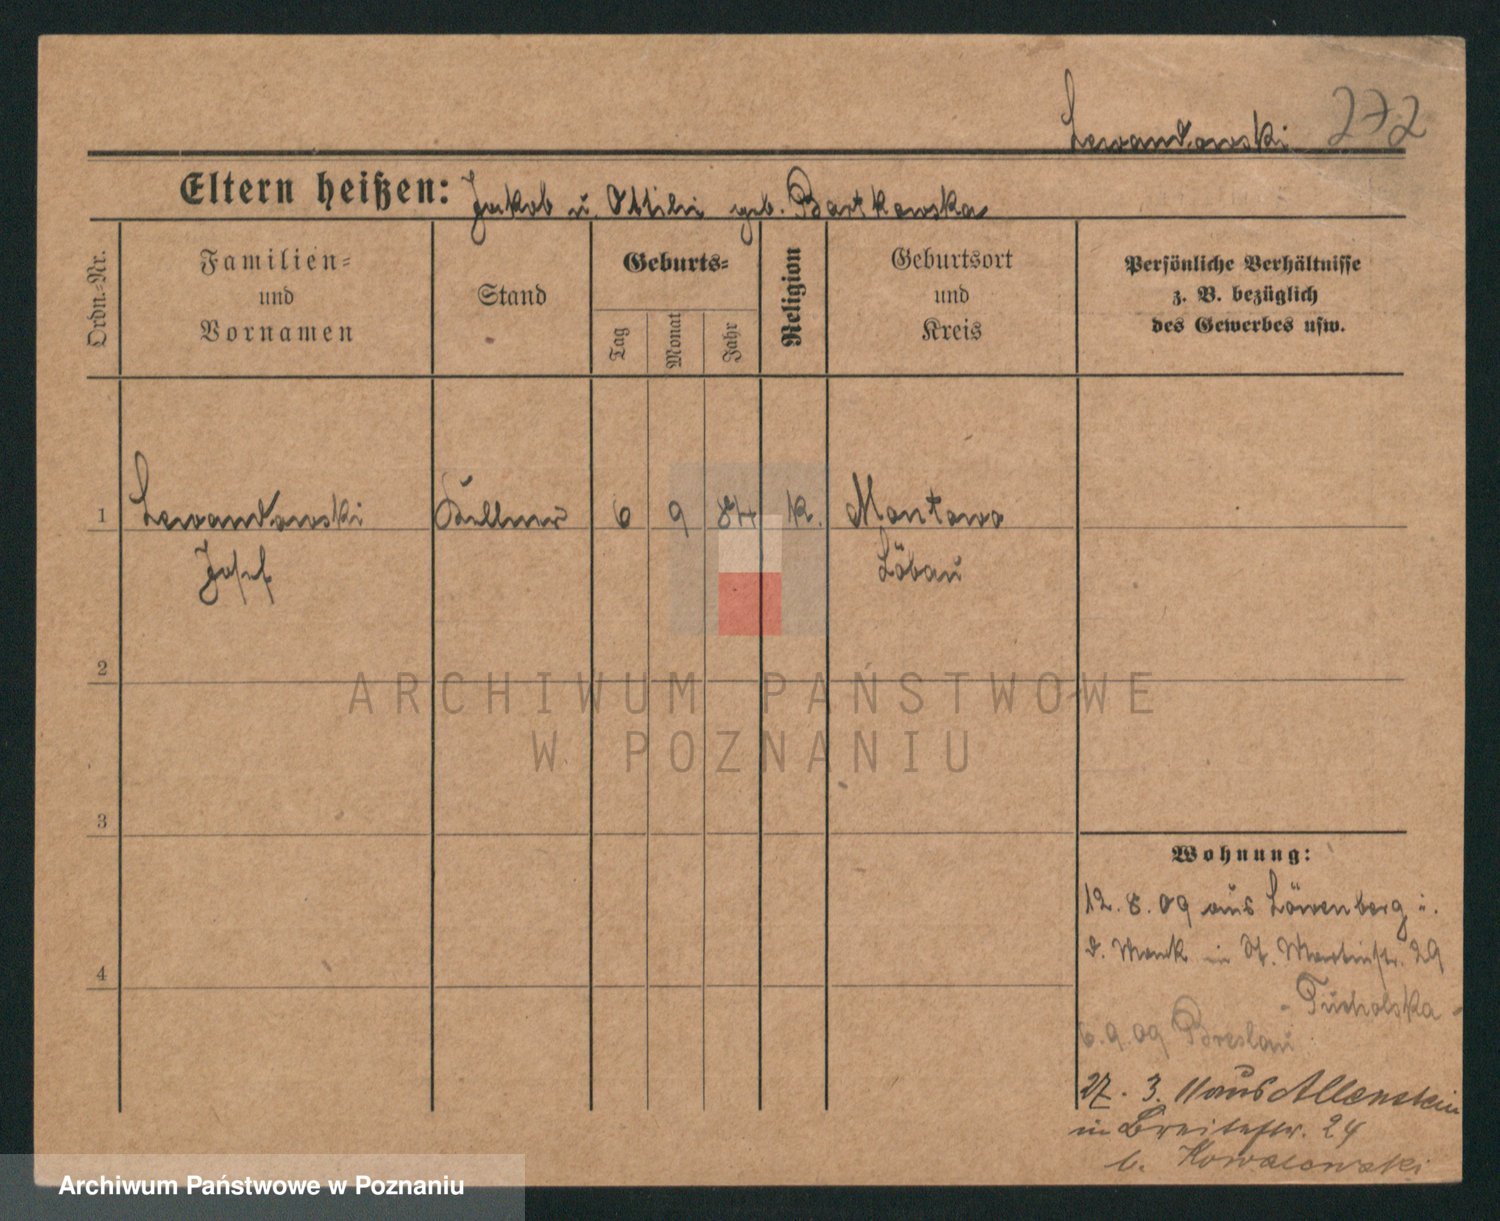 Lewandowski 272
Eltern heißen: Jakob u. Ottilie geb. Bartkowska
Ordn.-Nr.
Familien-
und
Vornamen
Stand
Geburts-
Tag
Monat
Jahr
Religion
Geburtsort
und
Kreis
Persönliche Verhältnisse
z. B. bezüglich
des Gewerbes usw.
1 Lewandowski Kellner 6 9 84 k. Montowo
Josef Löbau
2
3
4
Wohnung:
12. 8. 09 aus Löwenberg i.
d. Mark in St. Martinstr. 29
- Tucholska -
6. 9. 09 Breslau
27. 3. 11 aus Allenstein
in Breitestr. 24
b. Kowalewski
ARCHIWUM PAŃSTWOWE
W POZNANIU
Archiwum Państwowe w Poznaniu